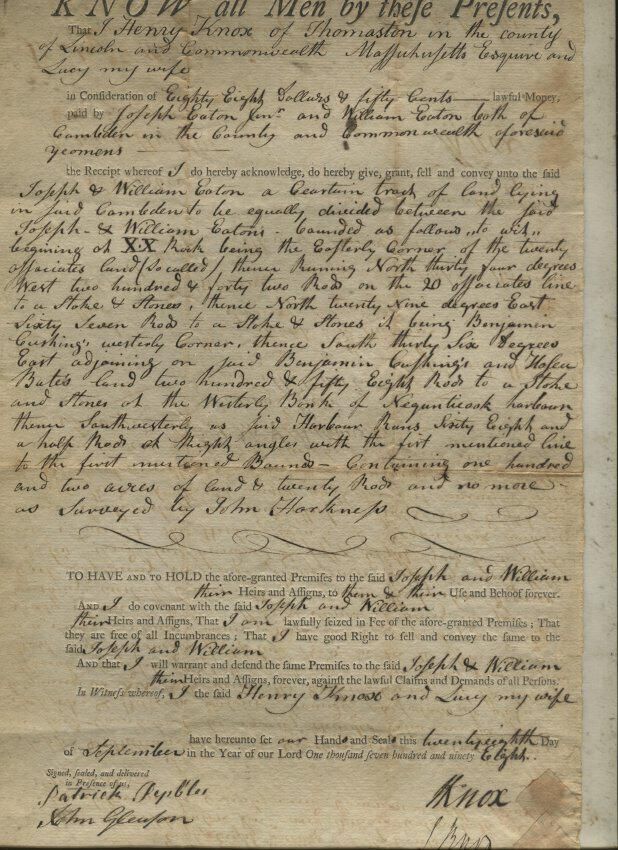 KNOW all Men by these Presents,
That I Henry Knox of Thomaston in the county
of Lincoln and Commonwealth Massachusetts Esquire and
Lucy my wife
in Consideration of Eighty Eight Dollars & fifty Cents lawful Money,
paid by Joseph Eaton Junr and William Eaton both of
Cambden in the County and Commonwealth aforesaid
yeomens
the Receipt whereof I do hereby acknowledge, do hereby give, grant, sell and convey unto the said
Joseph & William Eaton a Ceartain tract of land lying
in said Cambden to be equally divided between the said
Joseph & William Eatons - bounded as follows "to wit"
begining at X.X Rock being the Easterly Corner of the twenty
associates land (so called) thence Runing North thirty four degrees
West two hundred & forty two Rods on the 20 associates line
to a Stake & Stones, thence North twenty Nine degrees East
Sixty Seven Rods to a Stake & Stones it being Benjamin
Cushing's westerly Corner, thence South thirty Six Degrees
East adjoining on said Benjamin Cushing's and Hosea
Bates land two hundred & fifty Eight Rods to a Stake
and Stones at the Westerly Bank of Negunticook harbour
thence Southwesterly as said Harbour Runs Sixty Eight and
a half Rods at Right angles with the first mentioned line
to the first mentioned Bounds - Containing one hundred
and two acres of land & twenty Rods and no more
as Surveyed by John Harkness
TO HAVE AND TO HOLD the afore-granted Premises to the said Joseph and William
their Heirs and Assigns, to them & their Use and Behoof forever.
AND I do covenant with the said Joseph and William
their Heirs and Assigns, That I am lawfully seized in Fee of the afore-granted Premises; That
they are free of all Incumbrances; That I have good Right to sell and convey the same to the
said Joseph and William
AND that I will warrant and defend the same Premises to the said Joseph & William
their Heirs and Assigns, forever, against the lawful Claims and Demands of all Persons.
In Witness whereof, I the said Henry Knox and Lucy my wife
have hereunto set our Hands and Seals this twentyeighth Day
of September in the Year of our Lord One thousand seven hundred and ninety Eight.
Signed, sealed, and delivered
in Presence of us,
Patrick
John Gleason
Knox